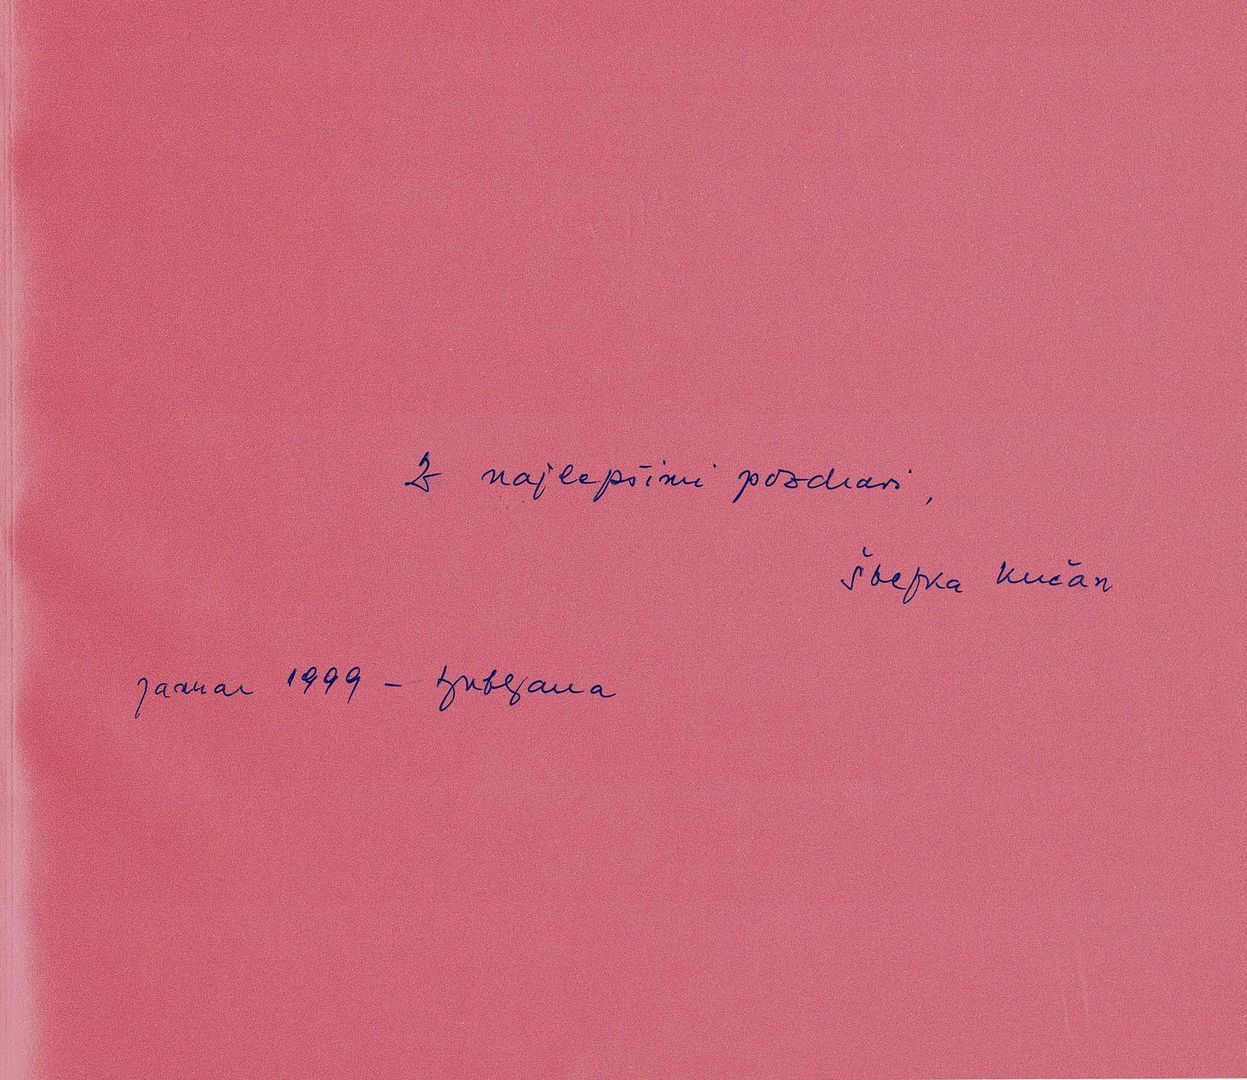 Z najlepšimi pozdravi,
Štefka Kučan
januar 1999 – Ljubljana